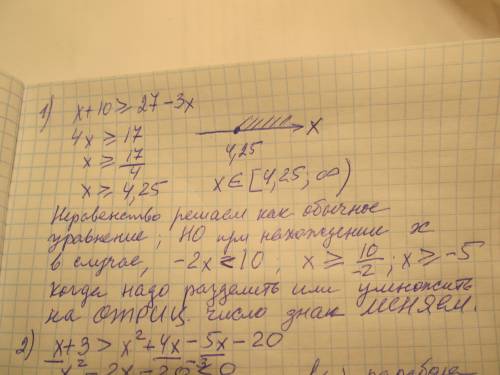 1) x+10 ≥ 27-3x
4x ≥ 17
x ≥ 17/4
x ≥ 4,25
x
4,25
x ∈ [4,25; ∞)
Неравенство решаем как обычное
уравнение; НО при нахождении x
в случае, -2x ≤ 10 ; x ≥ 10/-2 ; x ≥ -5
когда надо разделить или умножить
на ОТРИЦ. число знак МЕНЯЕМ.
2) x+3 > x²+4x-5x-20